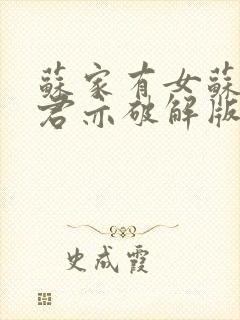 蘇家有女蘇
君亦破解版
史成霞